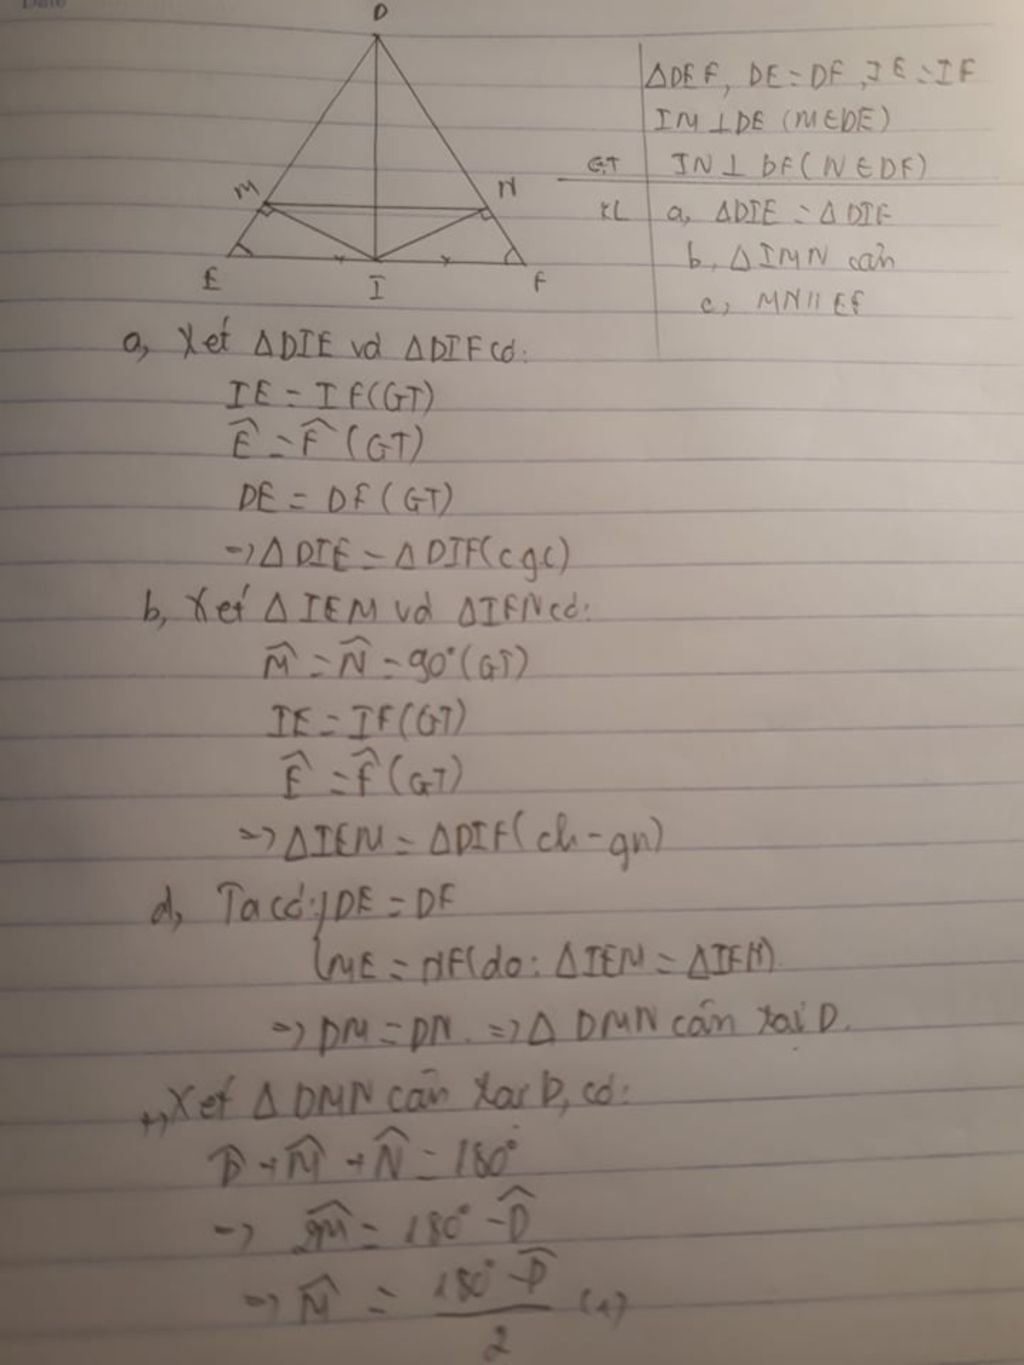 D
M
N
E
I
F
ΔDEF, DE = DF, IE = IF
IM ⊥ DE (M ∈ DE)
GT IN ⊥ DF (N ∈ DF)
KL a, ΔDIE = ΔDIF
b, ΔIMN cân
c, MN // EF
a, Xét ΔDIE và ΔDIF có:
IE = IF (GT)
Ê = F̂ (GT)
DE = DF (GT)
=> ΔDIE = ΔDIF (cgc)
b, Xét ΔIEM và ΔIFN có:
M̂ = N̂ = 90° (GT)
IE = IF (GT)
Ê = F̂ (GT)
=> ΔIEM = ΔDIF (ch - gn)
d, Ta có: { DE = DF
ME = NF (do: ΔIEM = ΔIFN)
=> DM = DN => Δ DMN cân tại D.
+, Xét Δ DMN cân tại D, có:
D̂ + M̂ + N̂ = 180°
=> 2M̂ = 180° - D̂
=> M̂ = 180° - D̂ / 2